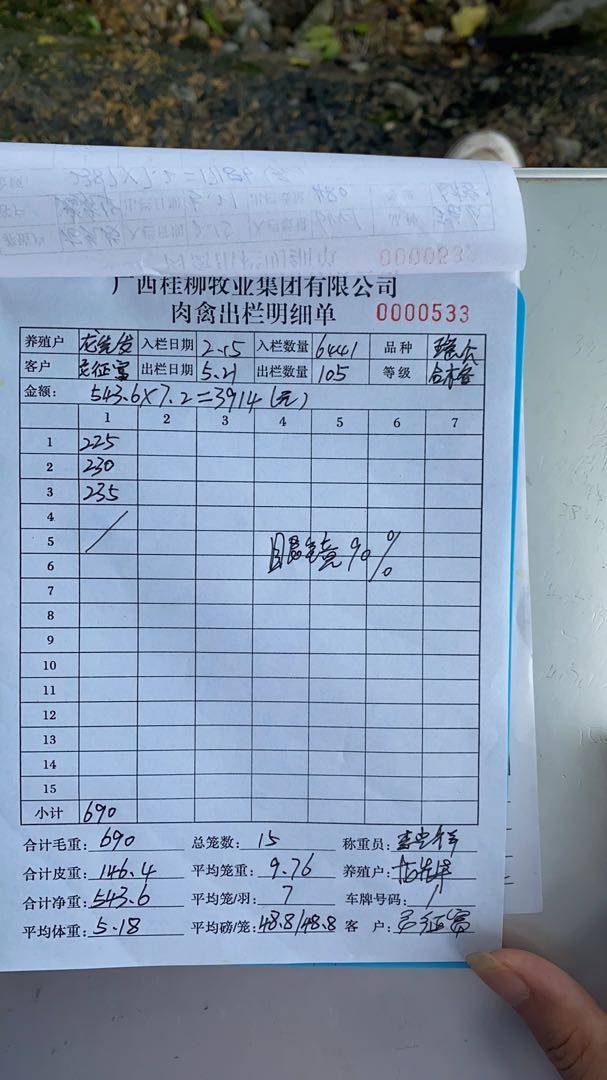 0000533
广西桂柳牧业集团有限公司
肉禽出栏明细单 0000533
养殖户 入栏日期 2.15 入栏数量 6441 品种
客户 出栏日期 5.21 出栏数量 105 等级
金额: 543.6×7.2=3914(元)
1 2 3 4 5 6 7
1 225
2 230
3 235
4
5 眼镜90%
6
7
8
9
10
11
12
13
14
15
小计 690
合计毛重: 690 总笼数: 15 称重员:
合计皮重: 146.4 平均笼重: 9.76 养殖户:
合计净重: 543.6 平均笼/羽: 7 车牌号码: /
平均体重: 5.18 平均磅/笼: 48.8/48.8 客户: